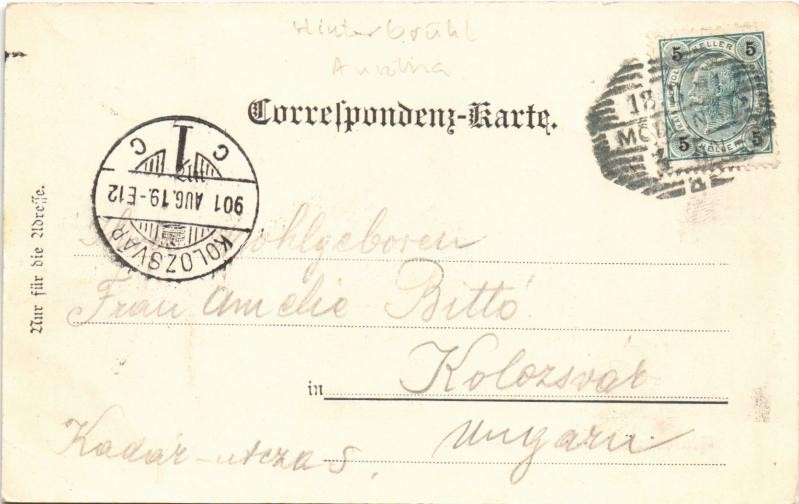 Hinterbrühl
Austria
Correspondenz-Karte.
5 HELLER 5
5 5
18
MÖD
KOLOZSVÁR
901 AUG.19.-E12
C 1 C
Nur für die Adresse.
Wohlgeboren
Frau Amelie Bittó
in Kolozsvár
Kadár-utcza 5,
Ungarn